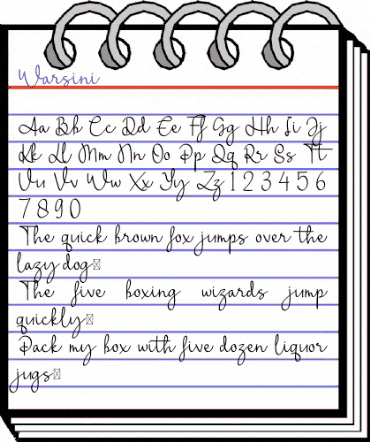 Warsini
Aa Bb Cc Dd Ee Ff Gg Hh Ii Jj
Kk Ll Mm Nn Oo Pp Qq Rr Ss Tt
Uu Vv Ww Xx Yy Zz 1 2 3 4 5 6
7 8 9 0
The quick brown fox jumps over the
lazy dog
The five boxing wizards jump
quickly
Pack my box with five dozen liquor
jugs